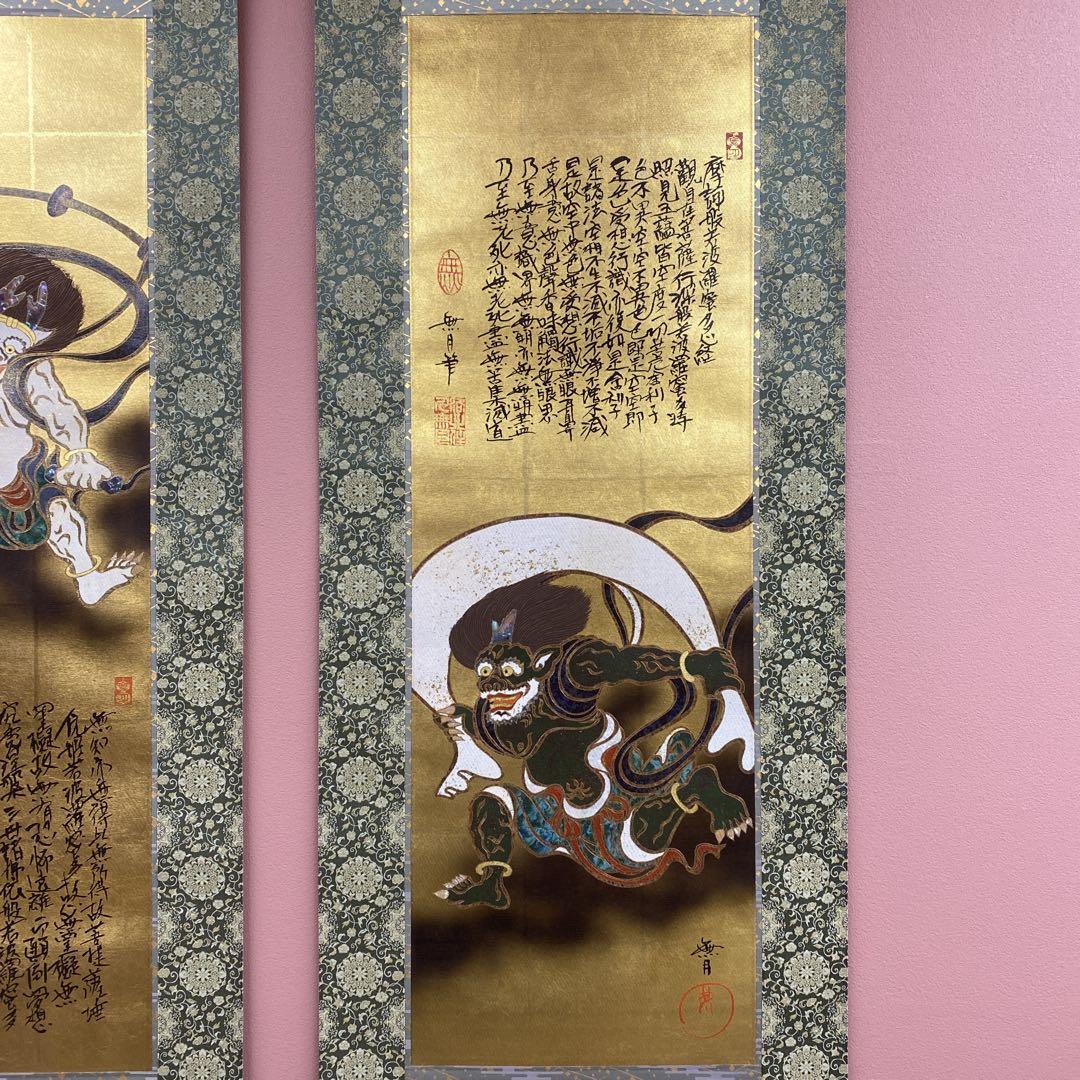 摩訶般若波羅蜜多心経
觀自在菩薩行深般若波羅蜜多時
照見五蘊皆空度一切苦厄舎利子
色不異空空不異色色即是空空即
是色受想行識亦復如是舎利子
是諸法空相不生不滅不垢不浄不増不減
是故空中無色無受想行識無眼耳鼻
舌身意無色聲香味觸法無眼界
乃至無意識界無無明亦無無明盡
乃至無老死亦無老死盡無苦集滅道
無月筆
無
無月
無智亦無得以無所得故菩提薩埵
依般若波羅蜜多故心無罣礙無
罣礙故無有恐怖遠離一切顛倒夢想
究竟涅槃三世諸佛依般若波羅蜜多